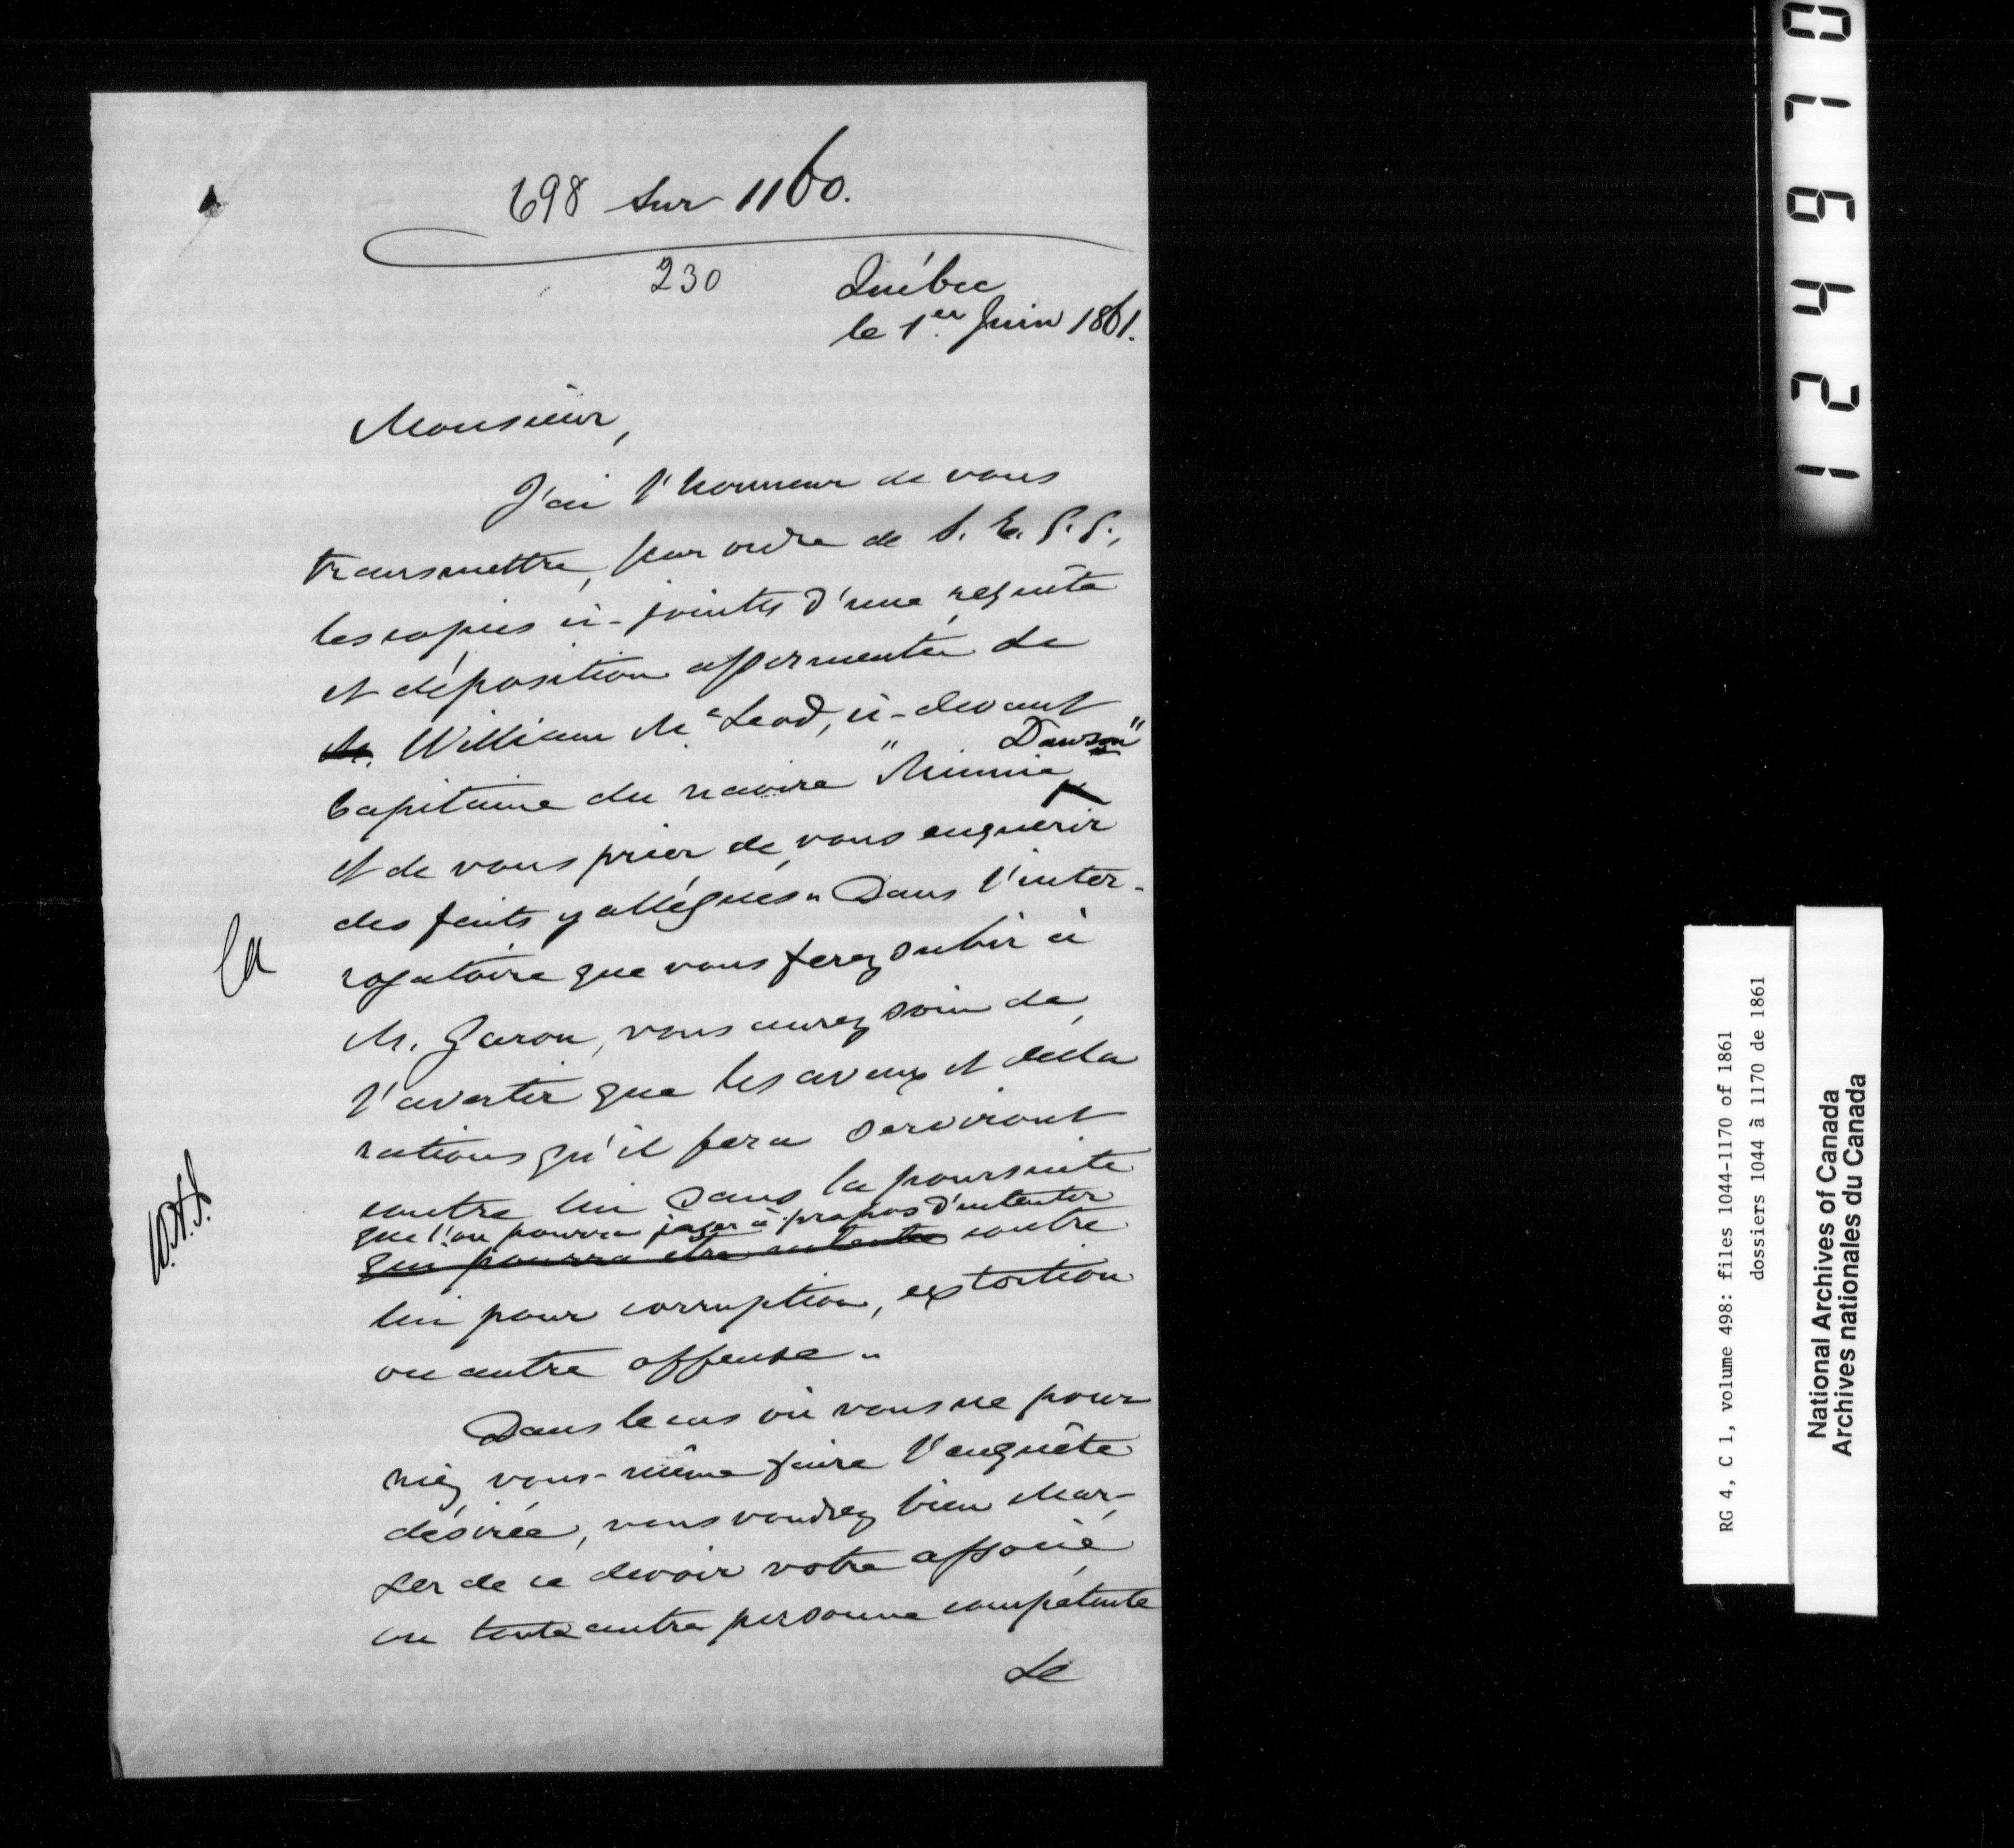 698 sur 1160.
230
Québec
le 1er Juin 1861.
Monsieur,
J'ai l'honneur de vous
transmettre, par ordre de S. E. G. G.,
les copies ci-jointes d'une requête
et déposition assermentée de
M. William McLeod, ci-devant
Capitaine du navire "Minnie Dawson"
et de vous prier de vous enquérir
des faits y allégués. Dans l'inter-
rogatoire que vous ferez subir à
la
M. Garon, vous aurez soin de
l'avertir que les aveux et décla
rations qu'il fera serviront
contre lui dans la poursuite
que l'on pourra juger à propos d'intenter
qui pourra être intentée contre
lui pour corruption, extortion
ou autre offense.
Dans le cas où vous ne pour
riez vous-même faire l'enquête
désirée, vous voudrez bien char-
ger de ce devoir votre associé
ou toute autre personne compétente
de
124970
RG 4, C 1, volume 498: files 1044-1170 of 1861
dossiers 1044 à 1170 de 1861
National Archives of Canada
Archives nationales du Canada